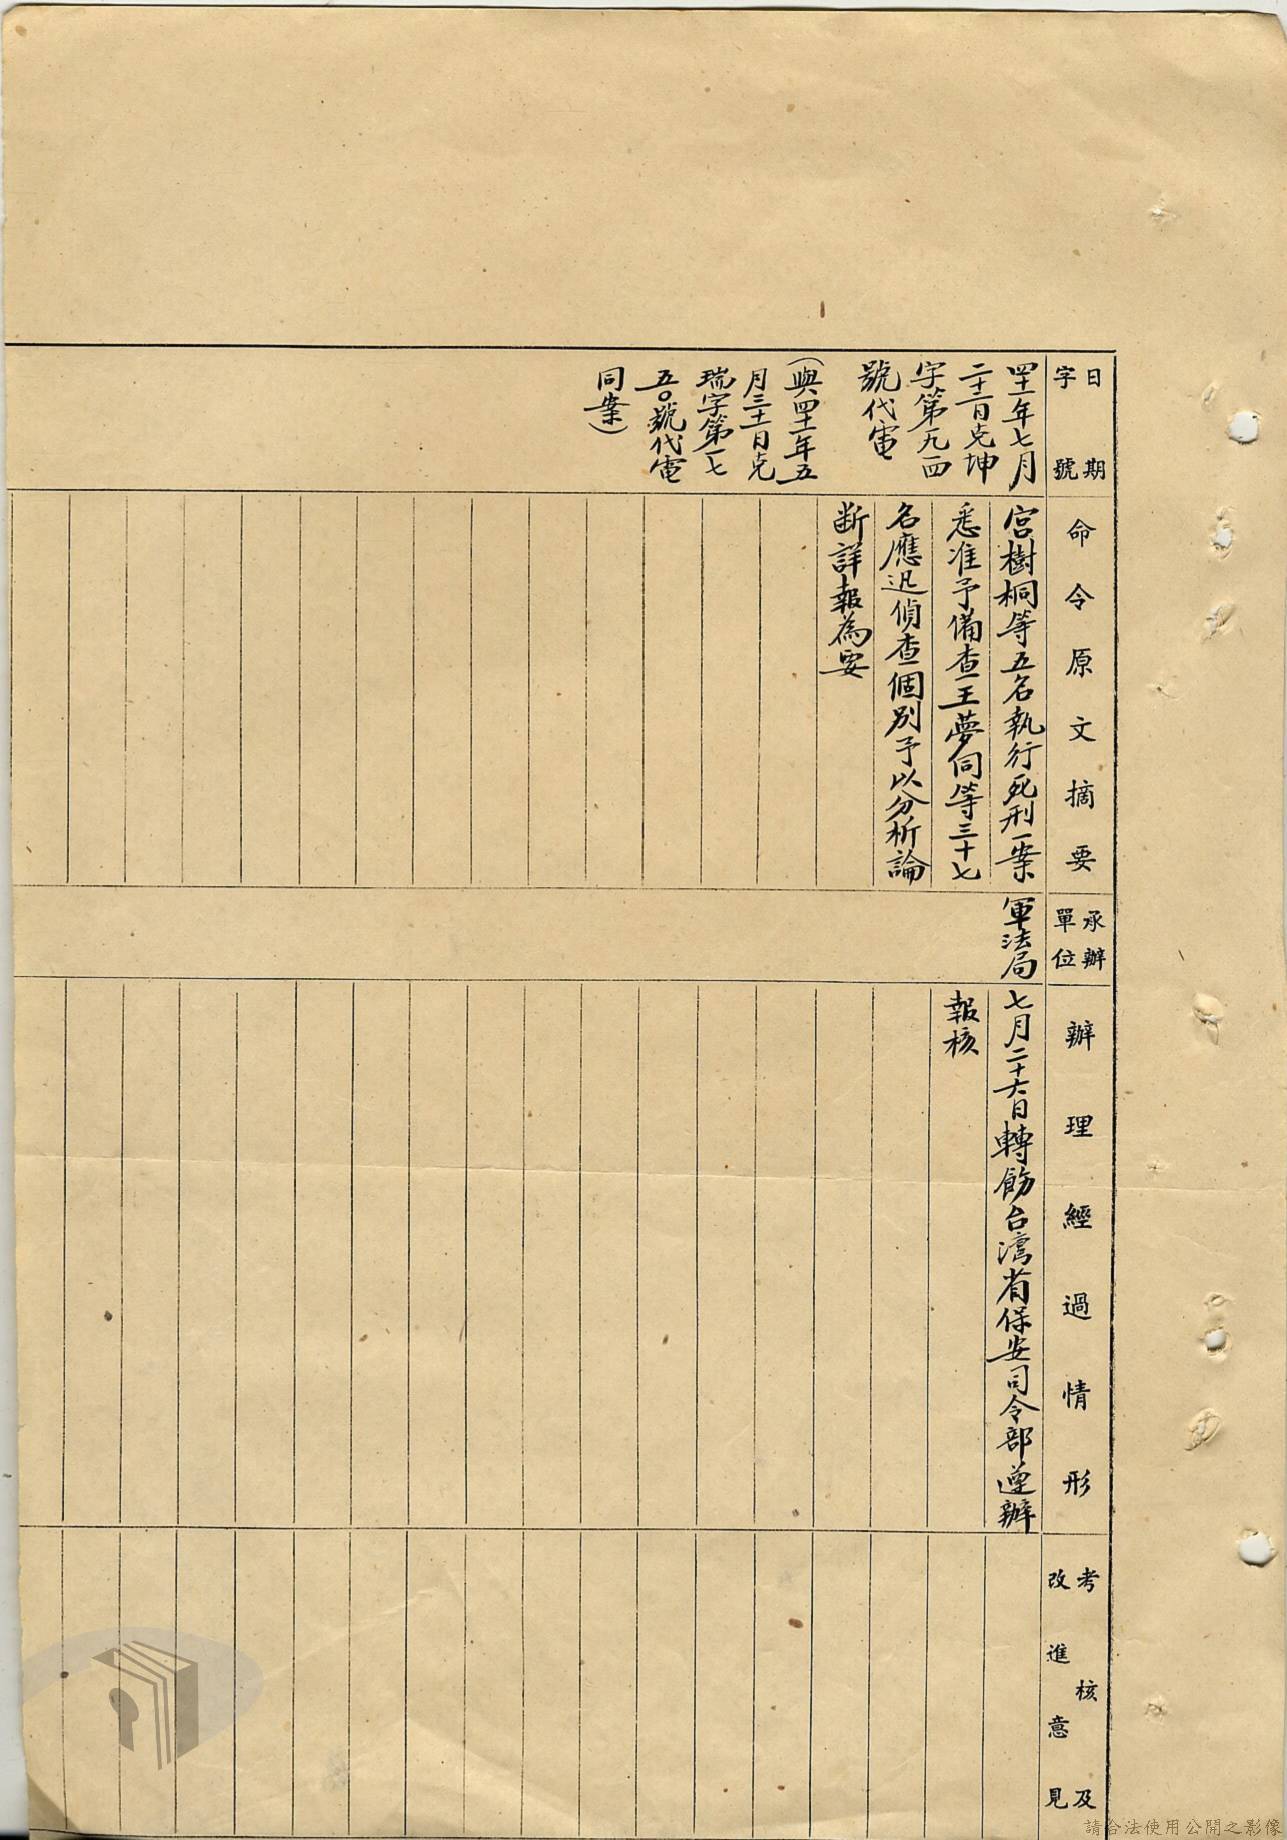 日期
字號
四十一年七月
二十二日克坤
字第九四
號代電
(與四十一年五
月三十一日克
瑞字第一七
五〇號代電
同案)
命令原文摘要
宮樹桐等五名執行死刑一案
悉准予備查王夢同等三十七
名應迅偵查個別予以分析論
斷詳報為要
承辦
單位
軍法局
辦理經過情形
七月二十六日轉飭台灣省保安司令部遵辦
報核
考核及
改進意見
請合法使用公開之影像